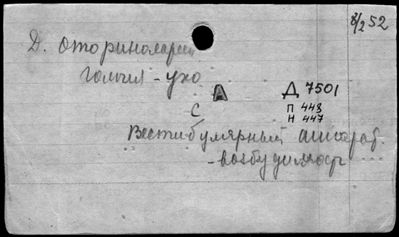 8/2 52
Д. Оториноларин
гология - ухо
А
Д 7501
С
П 448
Н 447
Вестибулярный аппарат.
- возбудимость ....